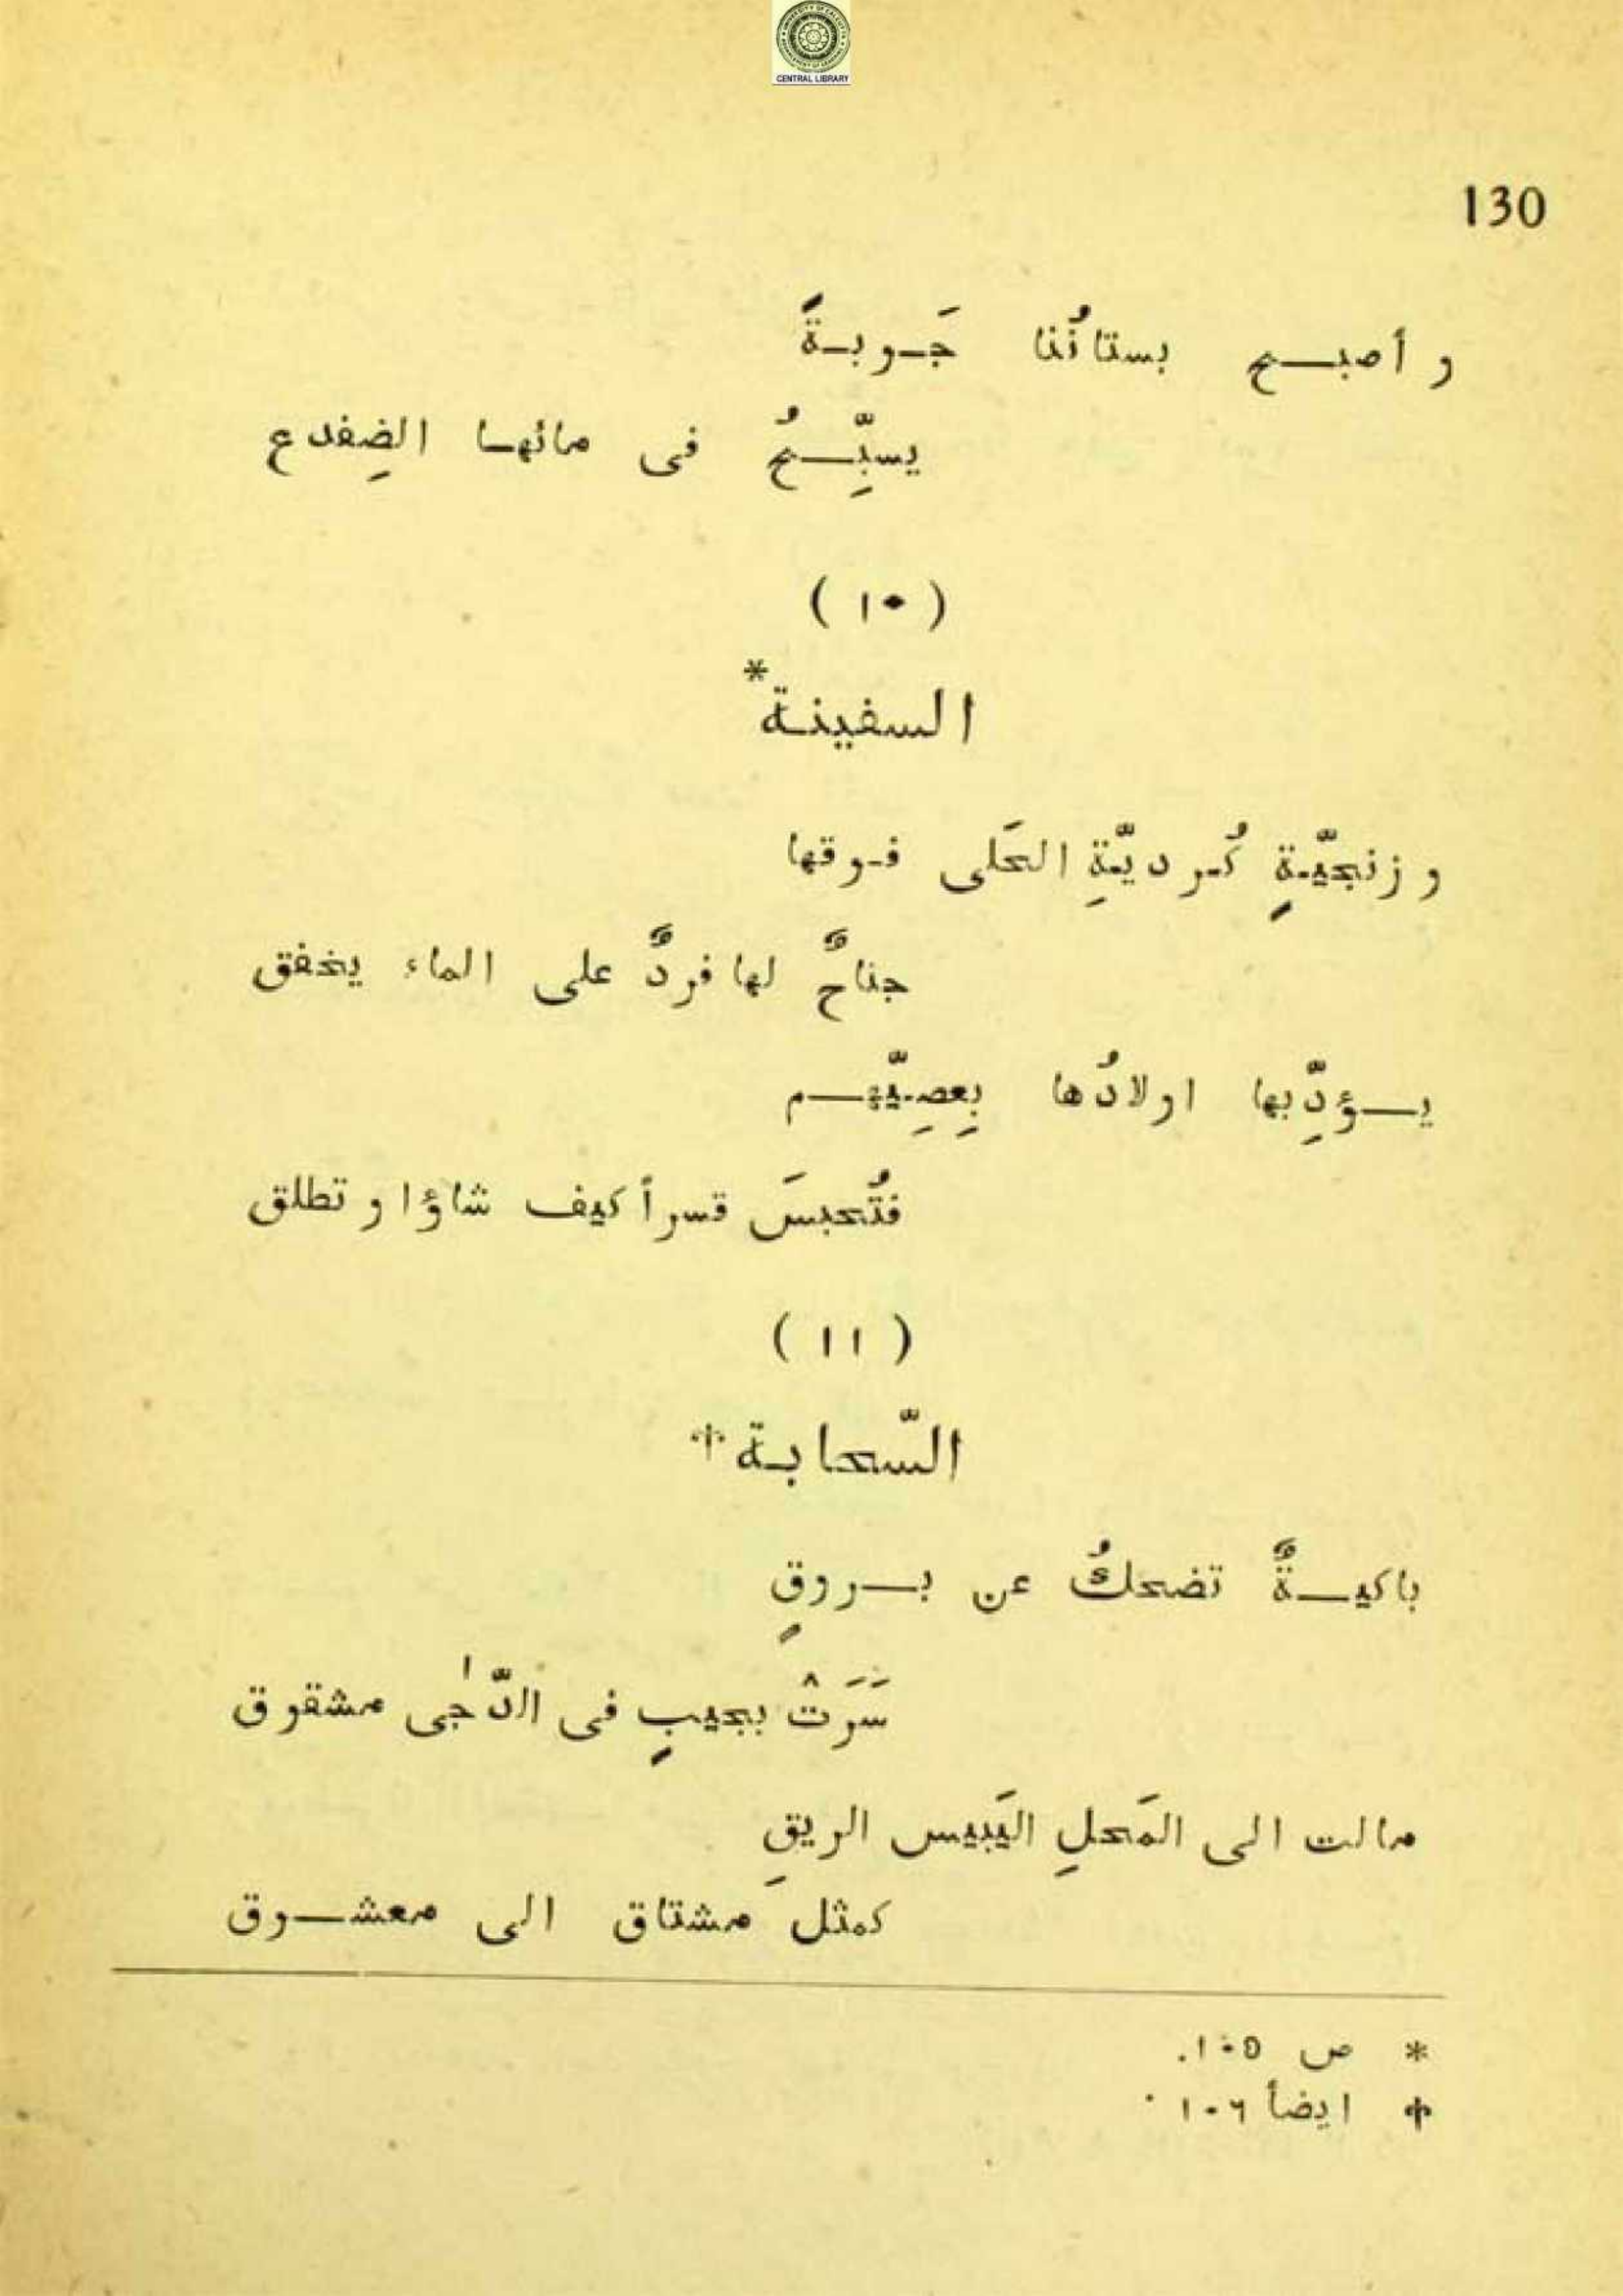 CENTRAL LIBRARY
130
و أصبح بستانُنا جَوبةً
يسبِّحُ فى مائها الضِفدع
( ١٠ )
السفينة*
و زنجيّةٍ كُرديّةِ الحَلى فوقها
جناحٌ لها فردٌ على الماء يخفق
يؤدِّبها اولادُها بِعصِيّهم
فتُحبسَ قسراً كيف شاؤا و تطلق
( ١١ )
السّحابة†
باكيةٌ تضحكُ عن بروقٍ
سَرَتْ بجيبٍ فى الدّجٰى مشقوق
مالت الى المَحلِ اليَبيس الريقِ
كمثل مشتاق الى معشوق
* ص ١٠٥.
† ايضاً ١٠٦.